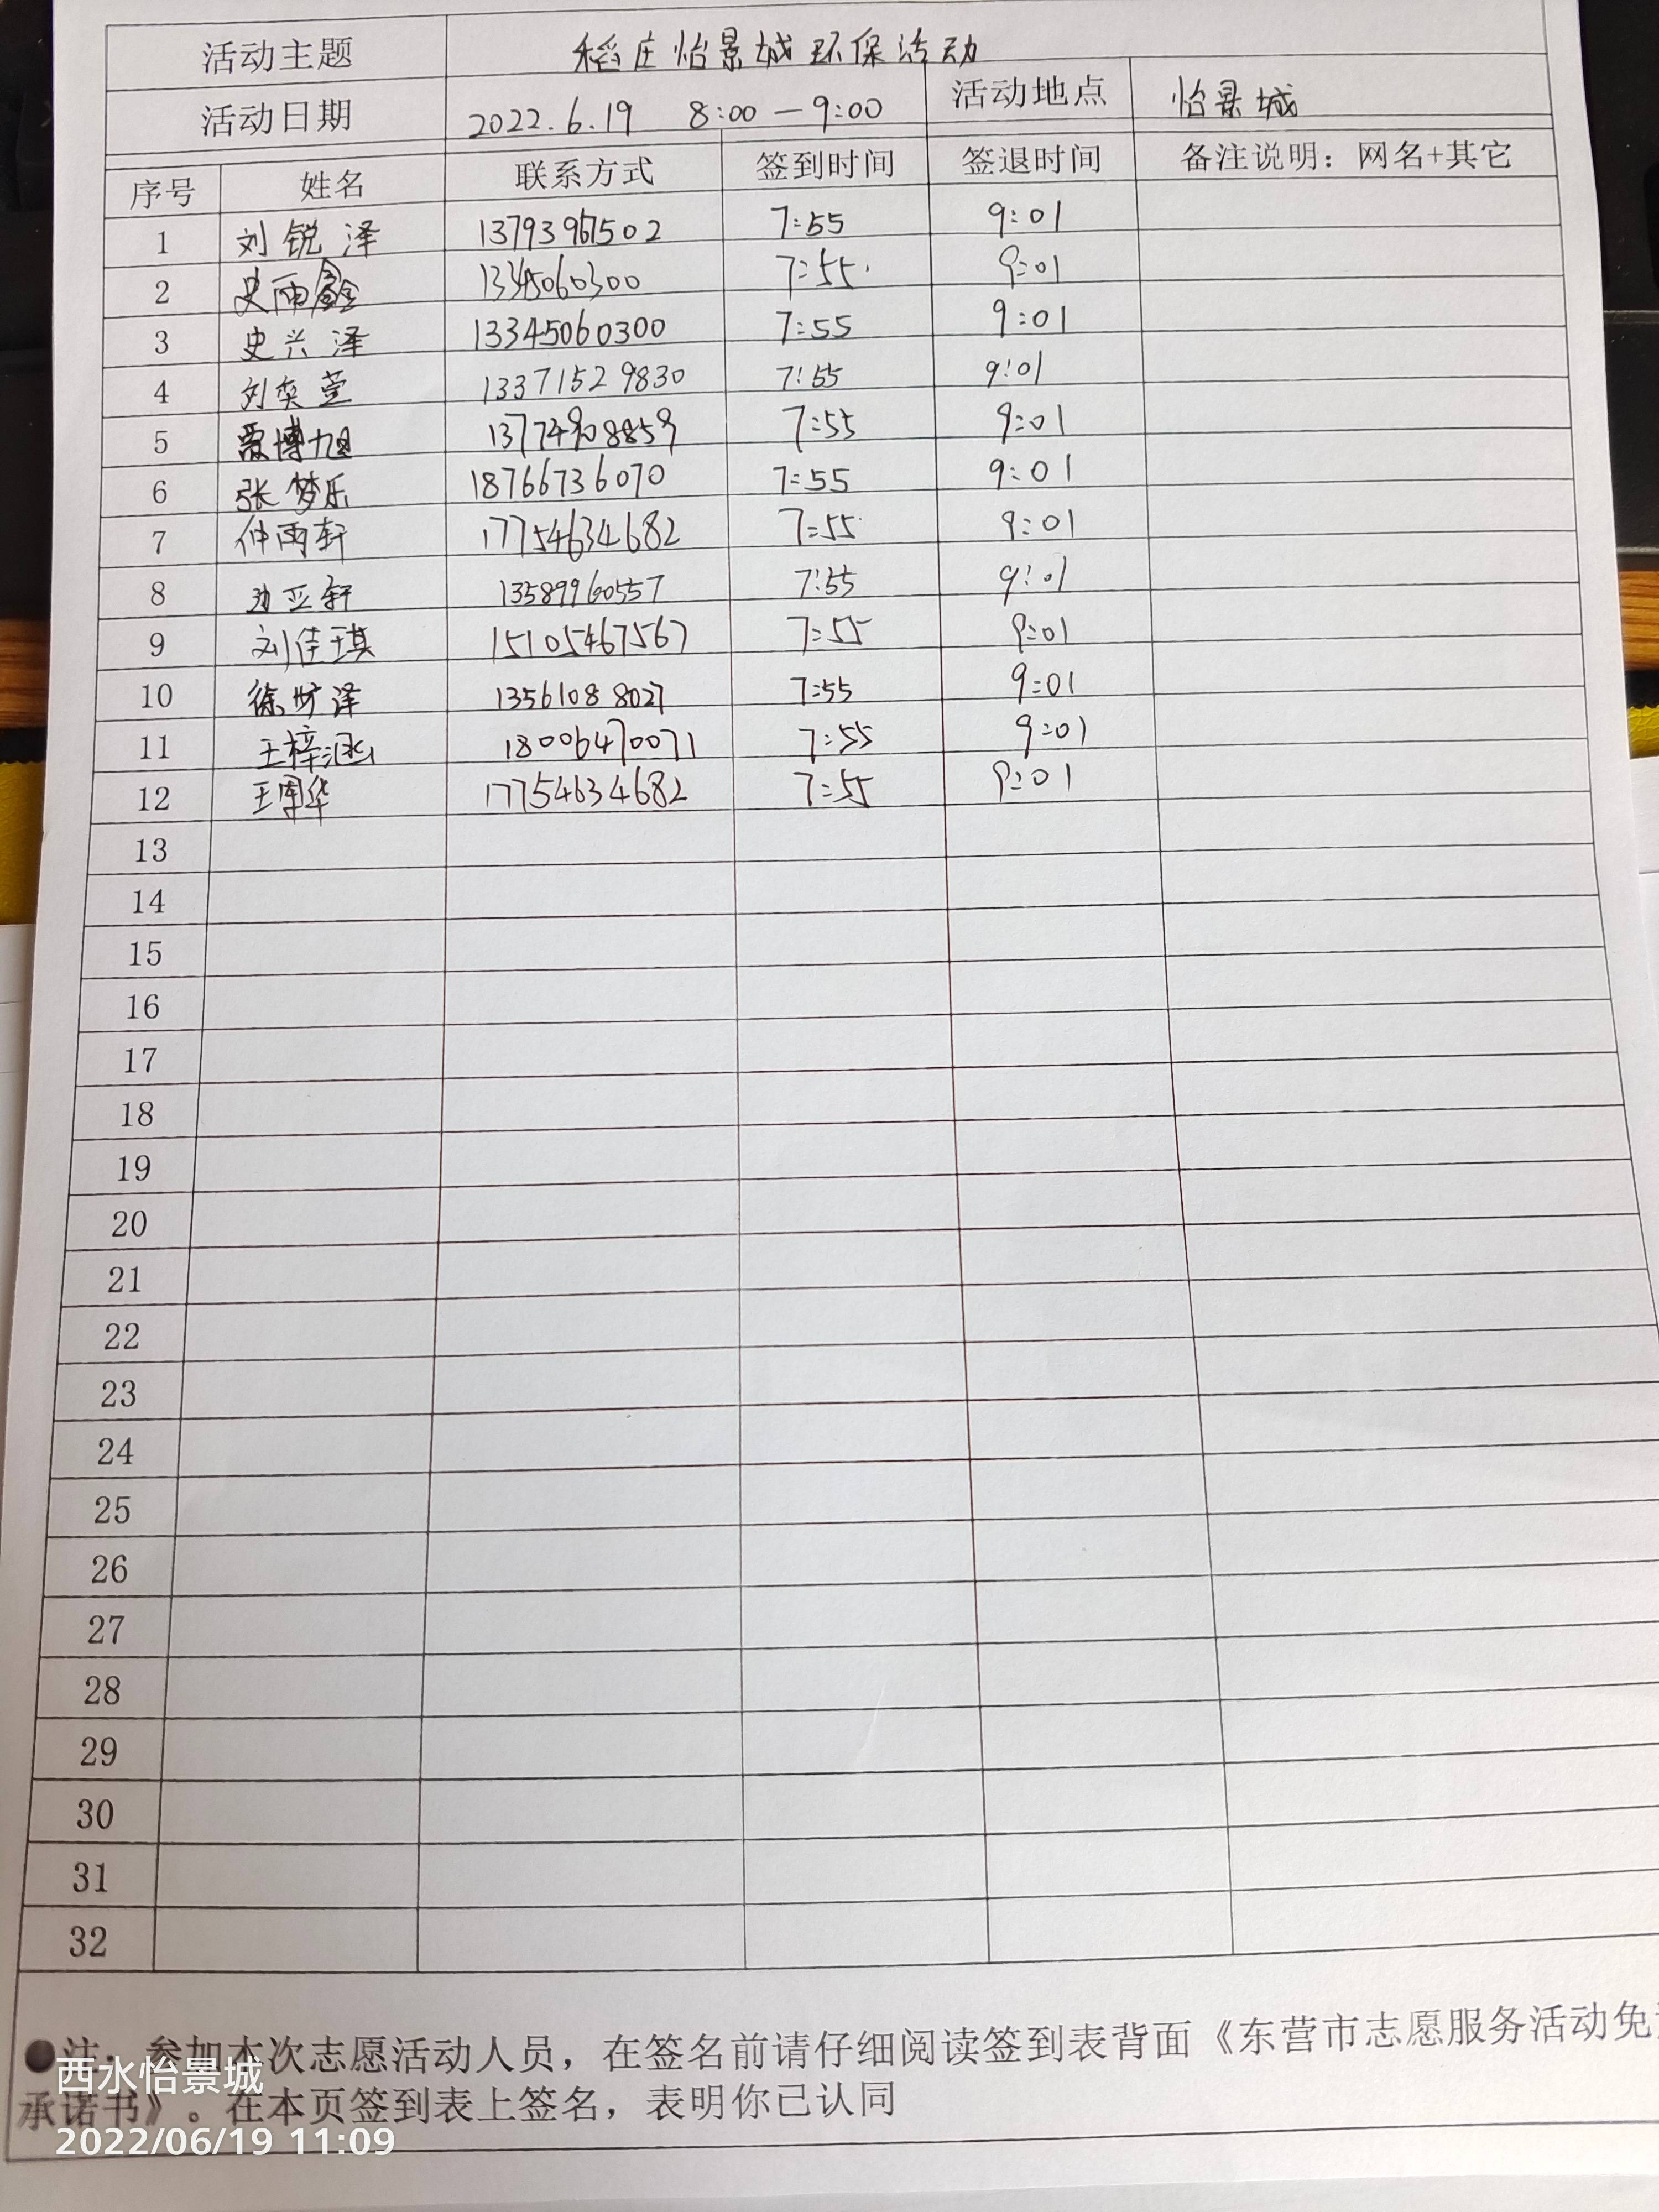 活动主题 稻庄怡景城环保活动
活动日期 2022.6.19 8:00—9:00 活动地点 怡景城
序号 姓名 联系方式 签到时间 签退时间 备注说明：网名+其它
1 刘锐泽 13793967502 7:55 9:01
2 史雨鑫 13345060300 7:55 9:01
3 史兴泽 13345060300 7:55 9:01
4 刘奕萱 13371529830 7:55 9:01
5 博旭 13774908859 7:55 9:01
6 张梦乐 18766736070 7:55 9:01
7 仲雨轩 17754634682 7:55 9:01
8 亚轩 13589960557 7:55 9:01
9 刘佳琪 15105467567 7:55 9:01
10 徐 泽 13561088027 7:55 9:01
11 王梓涵 18006470071 7:55 9:01
12 王军华 17754634682 7:55 9:01
13
14
15
16
17
18
19
20
21
22
23
24
25
26
27
28
29
30
31
32
●注：参加本次志愿活动人员，在签名前请仔细阅读签到表背面《东营市志愿服务活动免
承诺书》。在本页签到表上签名，表明你已认同
西水怡景城
2022/06/19 11:09